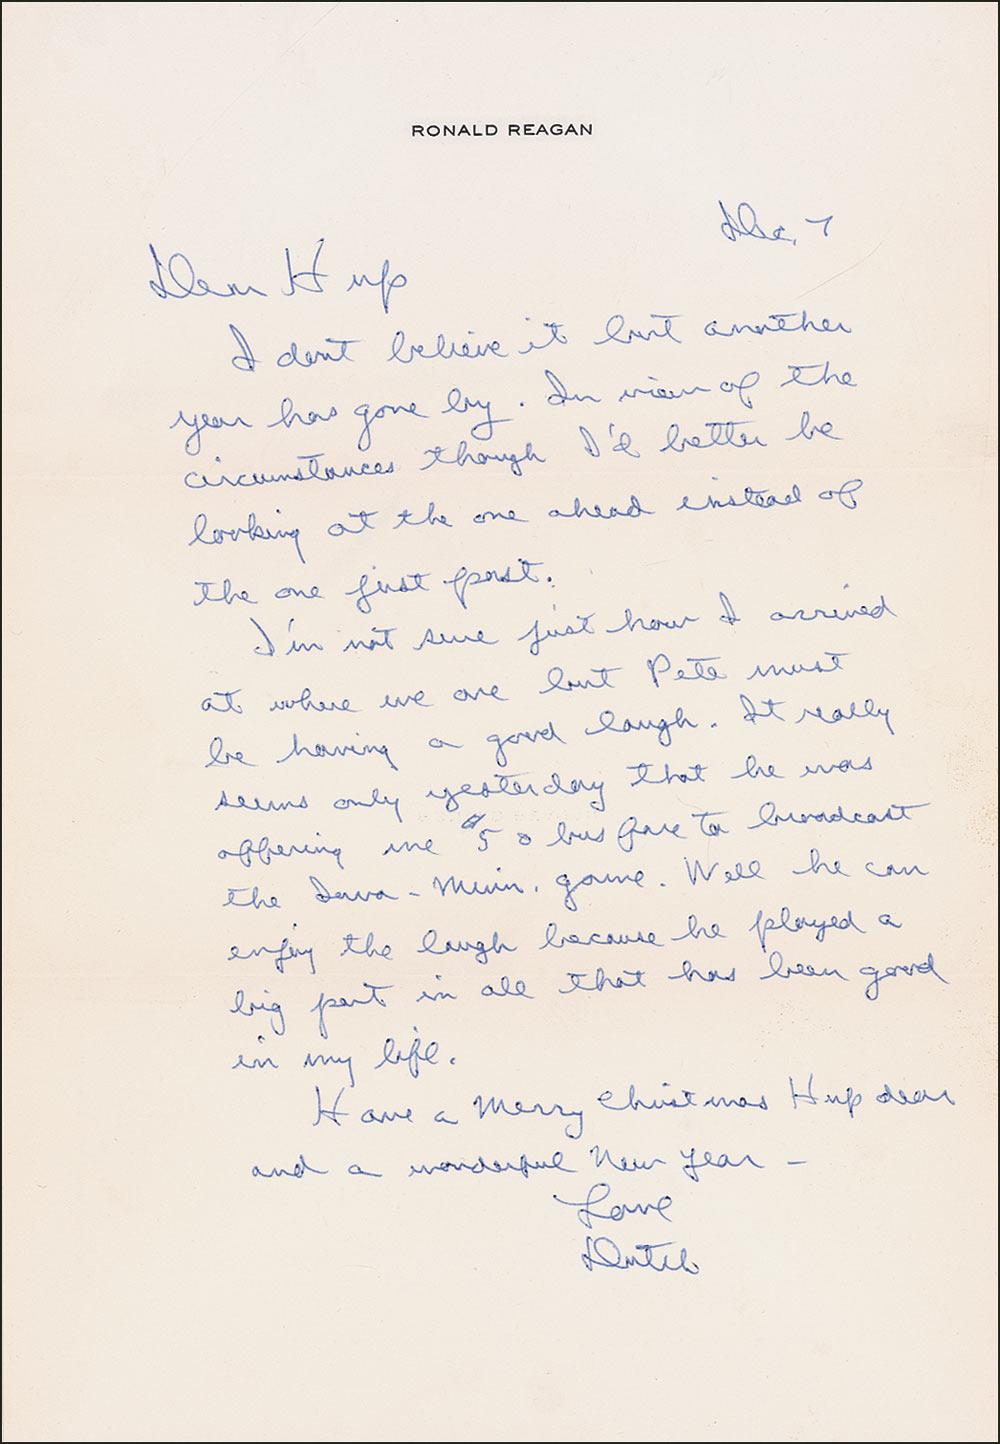 RONALD REAGAN
Dec. 7
Dear Hup
I dont believe it but another
year has gone by. In view of the
circumstances though I'd better be
looking at the one ahead instead of
the one just past.
I'm not sure just how I arrived
at where we are but Pete must
be having a good laugh. It really
seems only yesterday that he was
offering me $5 & bus fare to broadcast
the Iowa - Minn. game. Well he can
enjoy the laugh because he played a
big part in all that has been good
in my life.
Have a Merry Christmas Hup dear
and a wonderful New Year -
Love
Dutch